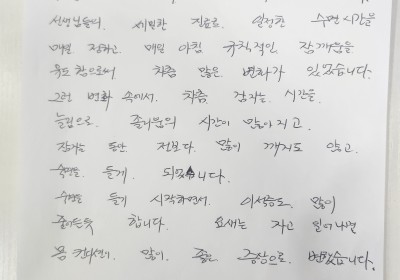 선생님들의. 세밀한 진료로. 일정한 수면시간을
매일 정하고. 매일 아침 규칙적인. 잠깨움을
유도함으로써 차츰 많은 변화가 있었습니다.
그런 변화 속에서. 차츰 잠자는. 시간을
늘림으로. 졸리움의 시간이 많아지고.
잠자는 동안 전보다. 많이 깨지도 않고.
숙면을. 들게. 되었습니다.
수면을 들기 시작하면서. 이석증도. 많이
줄어든듯 합니다. 요새는 자고 일어나면
몸 컨디션이. 많이. 좋은 증상으로. 변했습니다.